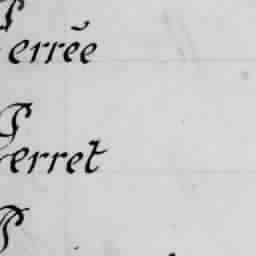 Perrée
Perret